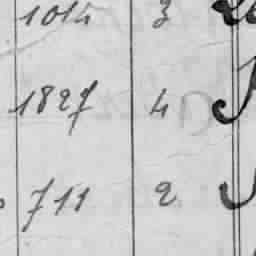 1014 3
1827 4
711 2